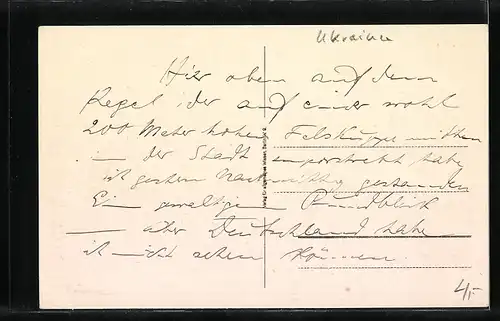 Ukraine
Hier oben auf dem
Kegel, der auf einer wohl
200 Meter hohen Felskuppe mitten
in der Stadt emporstrebt habe
ich gestern Nachmittag gestanden
Ein gewaltigen Rundblick
— aber Deutschland habe
ich nicht sehen können.
4,-